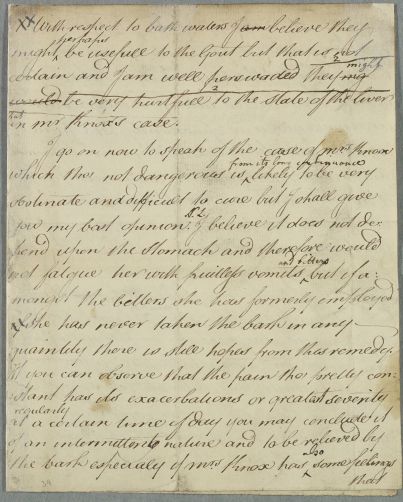 xx With respect to bath waters I am believe they
might perhaps be usefull to the Gout but that is not
certain and I am well perswaded they might
be very hurtfull to the state of the liver
but in mr Knox's case.
I go on now to speak of the case of mrs Knox
which tho' not dangerous is from its long continuance likely to be very
obstinate and difficult to cure but I shall give
you my best opinion. I believe it does not de:
pend upon the stomach and therefore would
not fatigue her with fruitless vomits and bitters, but if a:
mongst the bitters she has formerly employed
xx she has never taken the bark in any
quaintity there is still hopes from this remedy.
If you can observe that the pain tho' pretty con:
stant has its exacerbations or greatest severity
regularly at a certain time of day you may conclude it
of an intermittent nature and to be relieved by
the bark especially if mrs Knox has also some feelings
that